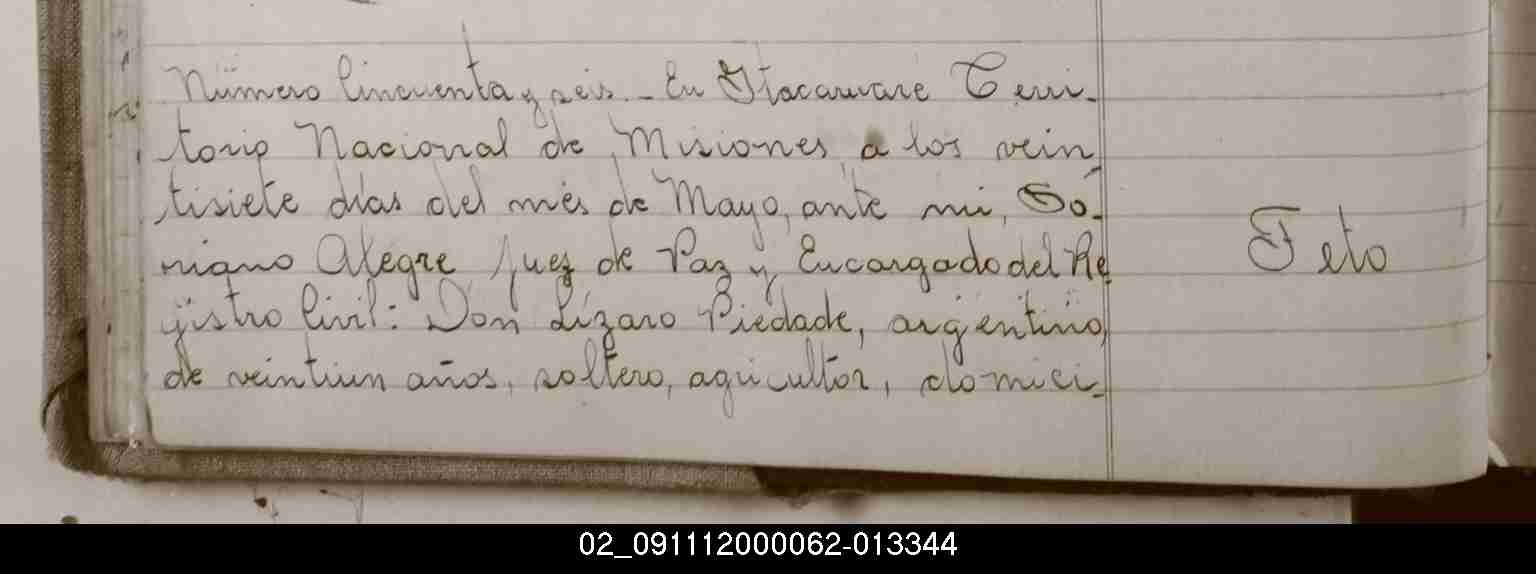 Número Cincuenta y seis.- En Itacaruaré Terri-
torio Nacional de Misiones, a los vein
tisiete días del més de Mayo, ante mi, Só-
riano Alegre Juez de Paz y Encargado del Re
jistro Civil: Don Lázaro Piedade, argentino,
de veintiun años, soltero, agricultor, domici-
Feto
02_091112000062-013344